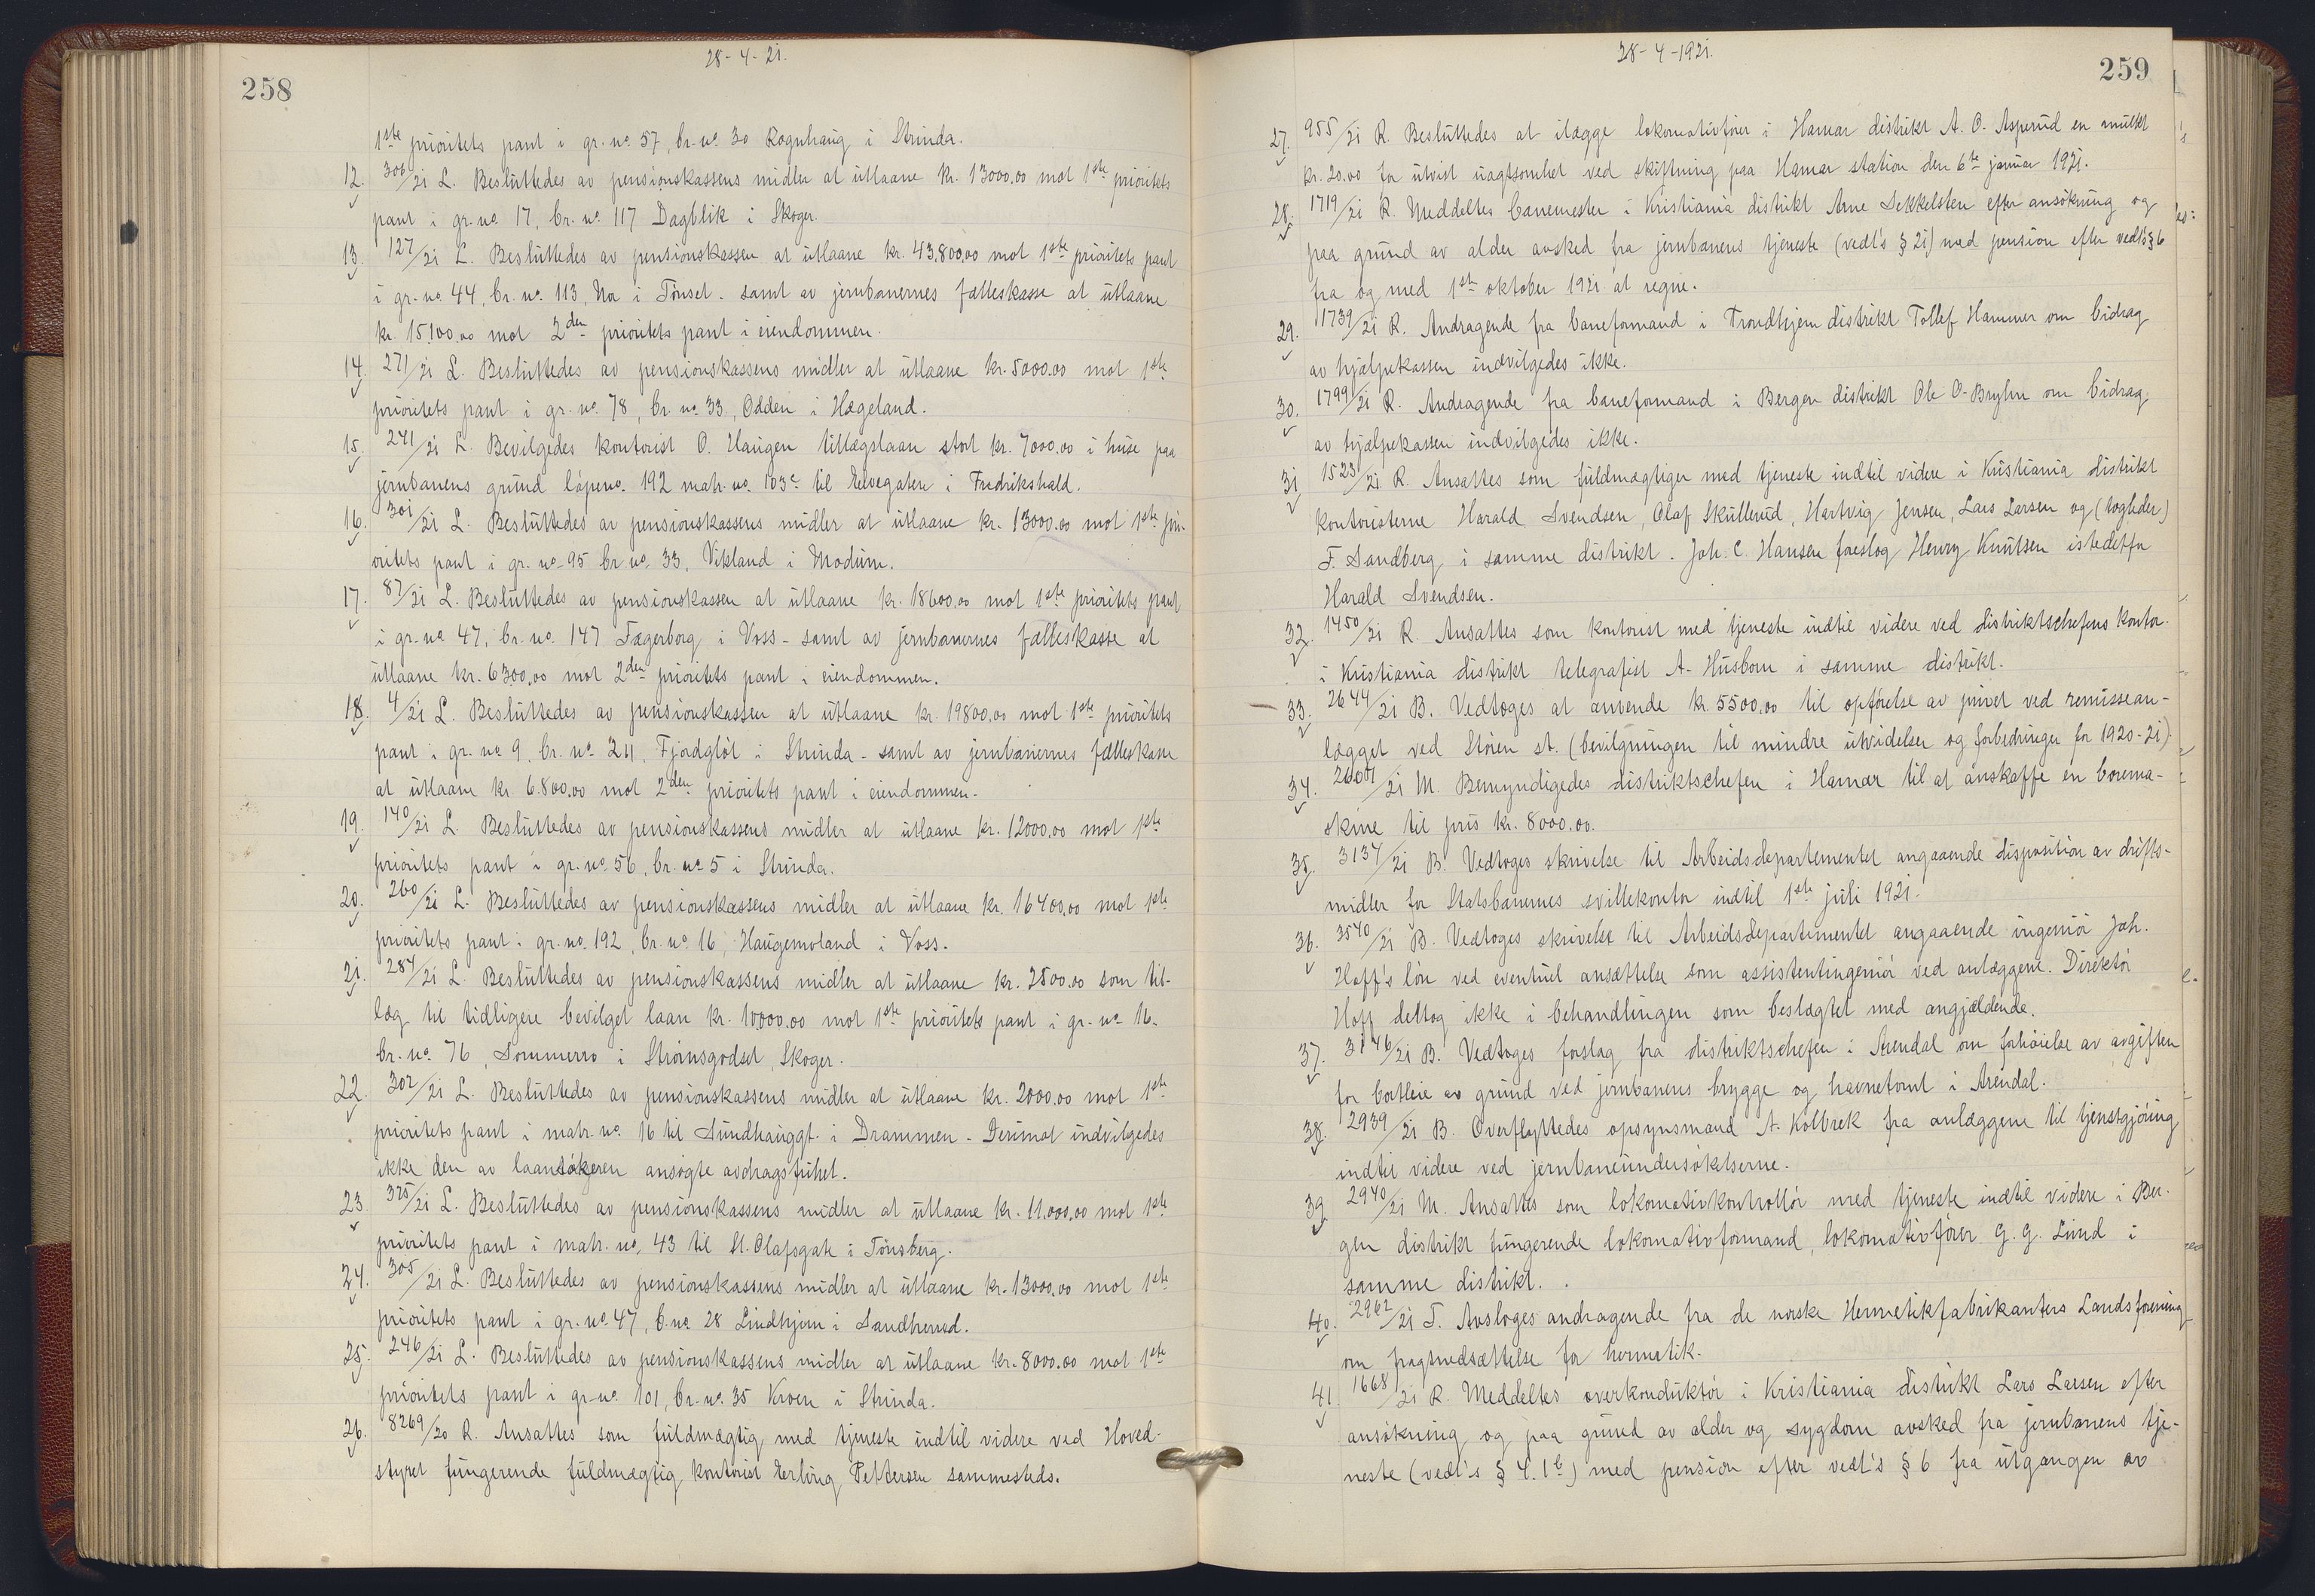 258
28-4-21.
1ste prioritets pant i gr. no. 57, br. no. 30 Rognhaug i Strinda.
12. 306/21 L. Besluttedes av pensionskassens midler at utlaane kr. 13000.00 mot 1ste prioritets
pant i gr. no. 17, br. no. 117 Dagblik i Skoger.
13. 127/21 L. Besluttedes av pensionskassen at utlaane kr. 43,800,00 mot 1ste prioritets pant
i gr. no. 44, br. no. 113, i Tönset. samt av jernbanernes fælleskasse at utlaane
kr. 15,100.00 mot 2den prioritets pant i eiendommen.
14. 271/21 L. Besluttedes av pensionskassens midler at utlaane kr. 5000.00 mot 1ste
prioritets pant i gr. no. 78, br. no. 33, Odden i Hægeland.
15. 241/21 L. Bevilgedes kontorist O. Haugen tillægslaan stort kr. 7000.00 i huse paa
jernbanens grund löpeno. 192 matr. no. 103c til Elvegaten i Fredrikshald.
16. 301/21 L. Besluttedes av pensionskassens midler at utlaane kr. 13000.00 mot 1ste pri-
oritets pant i gr. no. 95 br. no. 33, Vikland i Modum.
17. 87/21 L. Besluttedes av pensionskassen at utlaane kr. 18600.00 mot 1ste prioritets pant
i gr. no. 47, br. no. 147 Fagerborg i Voss - samt av jernbanernes fælleskasse at
utlaane kr. 6300.00 mot 2den prioritets pant i eiendommen.
18. 4/21 L. Besluttedes av pensionskassen at utlaane kr. 19800.00 mot 1ste prioritets
pant i gr. no. 9, br. no. 211, Fjordglöt i Strinda - samt av jernbanernes fælleskasse
at utlaane kr. 6.800.00 mot 2den prioritets pant i eiendommen.
19. 140/21 L. Besluttedes av pensionskassens midler at utlaane kr. 12000.00 mot 1ste
prioritets pant i gr. no. 56, br. no. 5 i Strinda.
20. 260/21 L. Besluttedes av pensionskassens midler at utlaane kr. 16400,00 mot 1ste
prioritets pant i gr. no. 192, br. no. 16, Haugemoland i Voss.
21. 284/21 L. Besluttedes av pensionskassens midler at utlaane kr. 2500.00 som til-
læg til tidligere bevilget laan kr. 10000.00 mot 1ste prioritets pant i gr. no. 16.
br. no. 76, Sommerro i Strömsgodset, Skoger.
22. 302/21 L. Besluttedes av pensionskassens midler at utlaane kr. 2000.00 mot 1ste
prioritets pant i matr. no. 16 til Sundhauggt. i Drammen. Derimot indvilgedes
ikke den av laansökeren ansögte avdragsfrihet.
23. 325/21 L. Besluttedes av pensionskassens midler at utlaane kr. 11.000,00 mot 1ste
prioritets pant i matr. no. 43 til St. Olafsgate i Tönsberg.
24. 305/21 L. Besluttedes av pensionskassens midler at utlaane kr. 13000,00 mot 1ste
prioritets pant i gr. no. 47, b. no. 28 Lindhjem i Sandherred.
25. 246/21 L. Besluttedes av pensionskassens midler at utlaane kr. 8000.00 mot 1ste
prioritets pant i gr. no. 101, br. no. 35 Kroen i Strinda.
26. 8269/20 R. Ansattes som fuldmægtig med tjeneste indtil videre ved Hoved-
styret fungerende fuldmægtig, kontorist Erling Pettersen sammesteds.
259
28-4-1921.
27. 955/21 R. Besluttedes at ilægge lokomotivförer i Hamar distrikt A. O. Asperud en mulkt
kr. 20.00 for utvist uagtsomhet ved skiftning paa Hamar station den 6te januar 1921.
28. 1719/21 R. Meddeltes banemester i Kristiania distrikt Arne Sekkelsten efter ansökning og
paa grund av alder avsked fra jernbanens tjeneste (vedt's § 21) med pension efter vedt's § 6
fra og med 1ste oktober 1921 at regne.
29. 1739/21 R. Andragende fra baneformand i Trondhjem distrikt Tollef Hammer om bidrag
av hjælpekassen indvilgedes ikke.
30. 1799/21 R. Andragende fra baneformand i Bergen distrikt Ole O. Bryhn om bidrag
av hjælpekassen indvilgedes ikke.
31. 1523/21 R. Ansattes som fuldmægtiger med tjeneste indtil videre i Kristiania distrikt
kontoristerne Harald Svendsen, Olaf Skullerud, Hartvig Jensen, Lars Larsen og (togleder)
F. Sandberg i samme distrikt. Joh. C. Hansen foreslog Henry Knutsen istedetfor
Harald Svendsen.
32. 1450/21 R. Ansattes som kontorist med tjeneste indtil videre ved distriktschefens kontor
i Kristiania distrikt telegrafist A. Husbom i samme distrikt.
33. 2644/21 B. Vedtoges at anvende kr. 5500.00 til opförelse av privet ved remissean-
lægget ved Stören st. (bevilgningen til mindre utvidelser og forbedringer for 1920-21)
34. 2607/21 M. Bemyndigedes distriktschefen i Hamar til at anskaffe en borema-
skine til pris kr. 8000.00.
35. 3137/21 B. Vedtoges skrivelse til Arbeidsdepartementet angaaende disposition av drifts-
midler for Statsbanernes svillekontor indtil 1ste juli 1921.
36. 3540/21 B. Vedtoges skrivelse til Arbeidsdepartementet angaaende ingeniör Joh.
Hoff's lön ved eventuel ansættelse som assistentingeniör ved anlæggene. Direktör
Hoff deltog ikke i behandlingen som beslægtet med angjældende.
37. 3146/21 B. Vedtoges forslag fra distriktschefen i Arendal om forhöielse av avgiften
for bortleie av grund ved jernbanens brygge og havnetomt i Arendal.
38. 2939/21 B. Overflyttedes opsynsmand A. Kolbrek fra anlæggene til tjenstgjöring
indtil videre ved jernbaneundersökelserne.
39. 2940/21 M. Ansattes som lokomotivkontrollör med tjeneste indtil videre i Ber-
gen distrikt fungerende lokomotivformand, lokomotivförer G. G. Lund i
samme distrikt.
40. 2962/21 T. Avsloges andragende fra de norske Hermetikfabrikanters Landsforening
om fragtnedsættelse for hermetik.
41. 1668/21 R. Meddeltes overkonduktör i Kristiania distrikt Lars Larsen efter
ansökning og paa grund av alder og sygdom avsked fra jernbanens tje-
neste (vedt's § 4.1b) med pension efter vedt's § 6 fra utgangen av